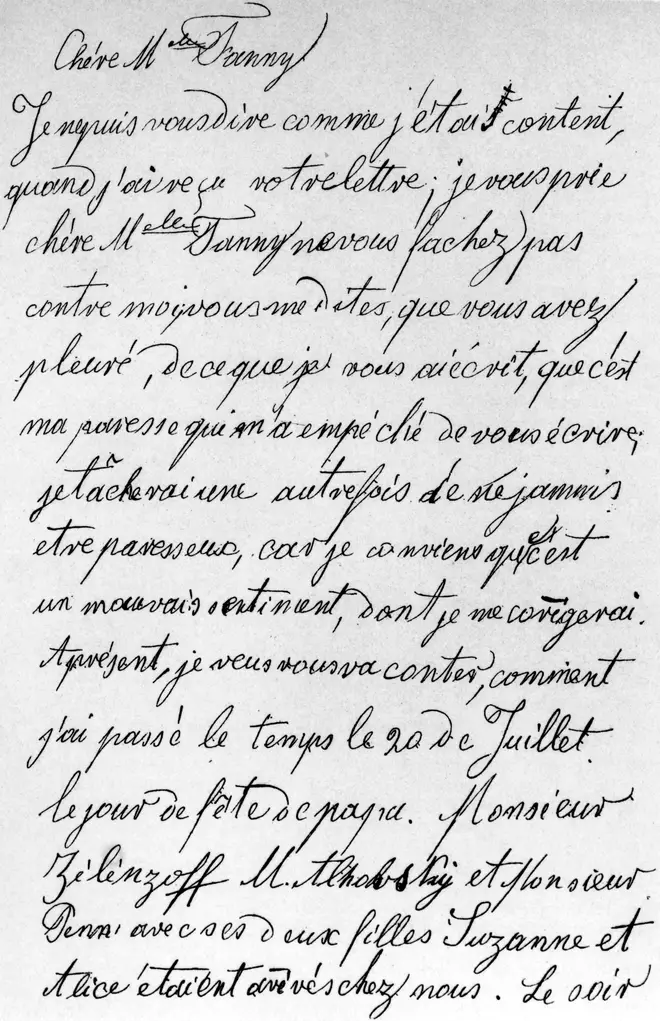 Chère M^elle Fanny
Je ne puis vous dire comme j'étais content,
quand j'ai reçu votre lettre; je vous prie
chère M^elle Fanny ne vous fachez pas
contre moi, vous me dites, que vous avez
pleuré, de ce que je vous ai écrit, que c'est
ma paresse qui m'a empéché de vous écrire,
je tâcherai une autre fois de ne jamais
etre paresseux, car je conviens que c'est
un mauvais sentiment, dont je me corrigerai.
Aprésent, je veus vous raconter, comment
j'ai passé le temps le 20 de Juillet
le jour de fête de papa. Monsieur
Zélénzoff M. et Monsieur
avec ses deux filles Suzanne et
Alice étaient arrivés chez nous. Le soir